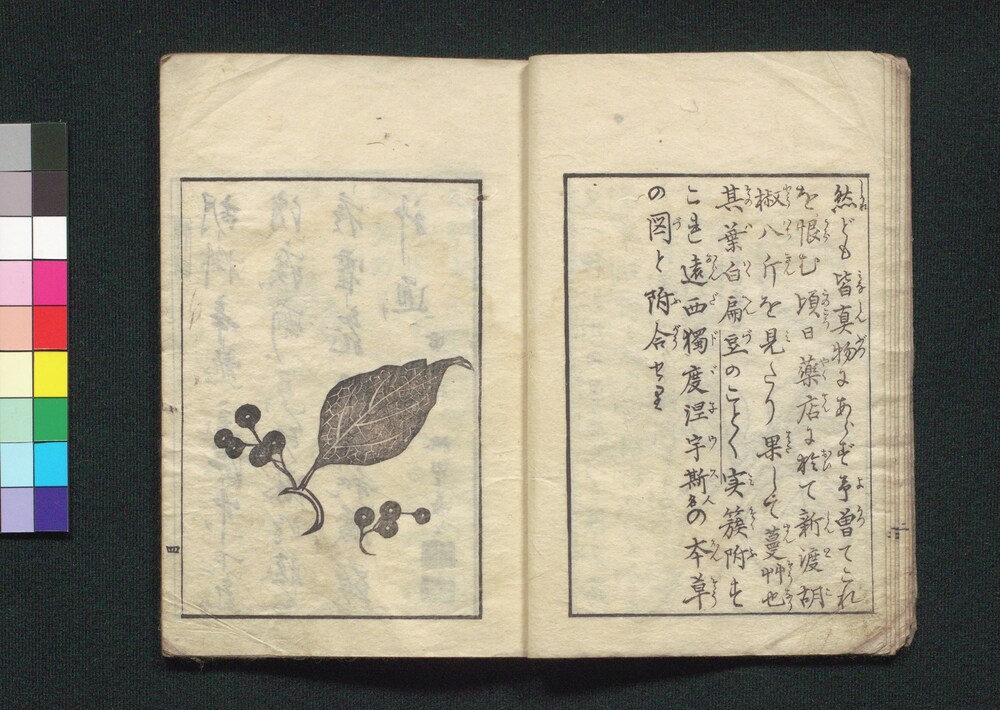 然ども皆真物にあらず予曽てこれ
を恨む頃日薬店に於て新渡胡
椒八斤を見たり果して蔓艸也
其葉白扁豆のことく実簇附す
これ遠西獨度涅宇斯人名の本草
の図と附合せり
四